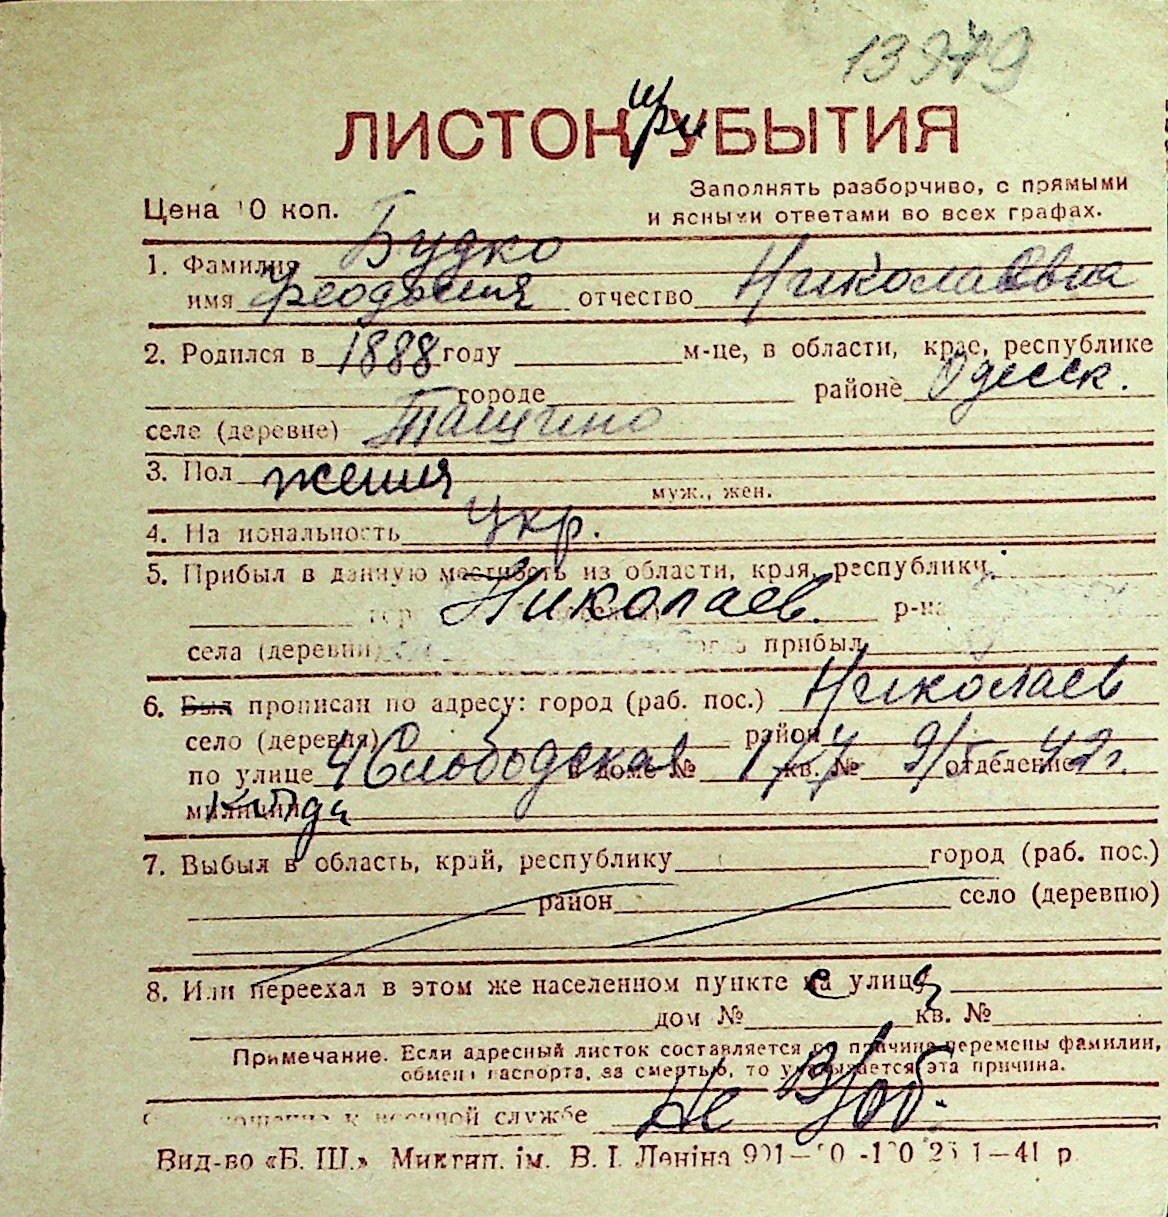 13979
ЛИСТОК при УБЫТИЯ
Заполнять разборчиво, с прямыми
Цена 10 коп. и ясными ответами во всех графах.
Будко
1. Фамилия
имя Феодосия отчество Николаевна
2. Родился в 1888 году м-це, в области, крае, республике
городе районе Одесск.
селе (деревне) Тащино
3. Пол женщ
муж., жен.
4. Национальность Укр.
5. Прибыл в данную местность из области, края, республики
гор Николаев. р-на
села (деревни) прибыл
6. Был прописан по адресу: город (раб. пос.) Николаев
село (деревня) район
по улице 4 Слободская в доме № 177 кв. № отделение 42г.
милиции
7. Выбыл в область, край, республику город (раб. пос.)
район село (деревню)
8. Или переехал в этом же населенном пункте с улицы
дом № кв. №
Примечание. Если адресный листок составляется по причине перемены фамилии,
обмена паспорта, за смертью, то указывается эта причина.
к военной службе Не В/об.
Вид-во «Б. Ш.» Микгип. ім. В. І. Леніна 1—41 р.